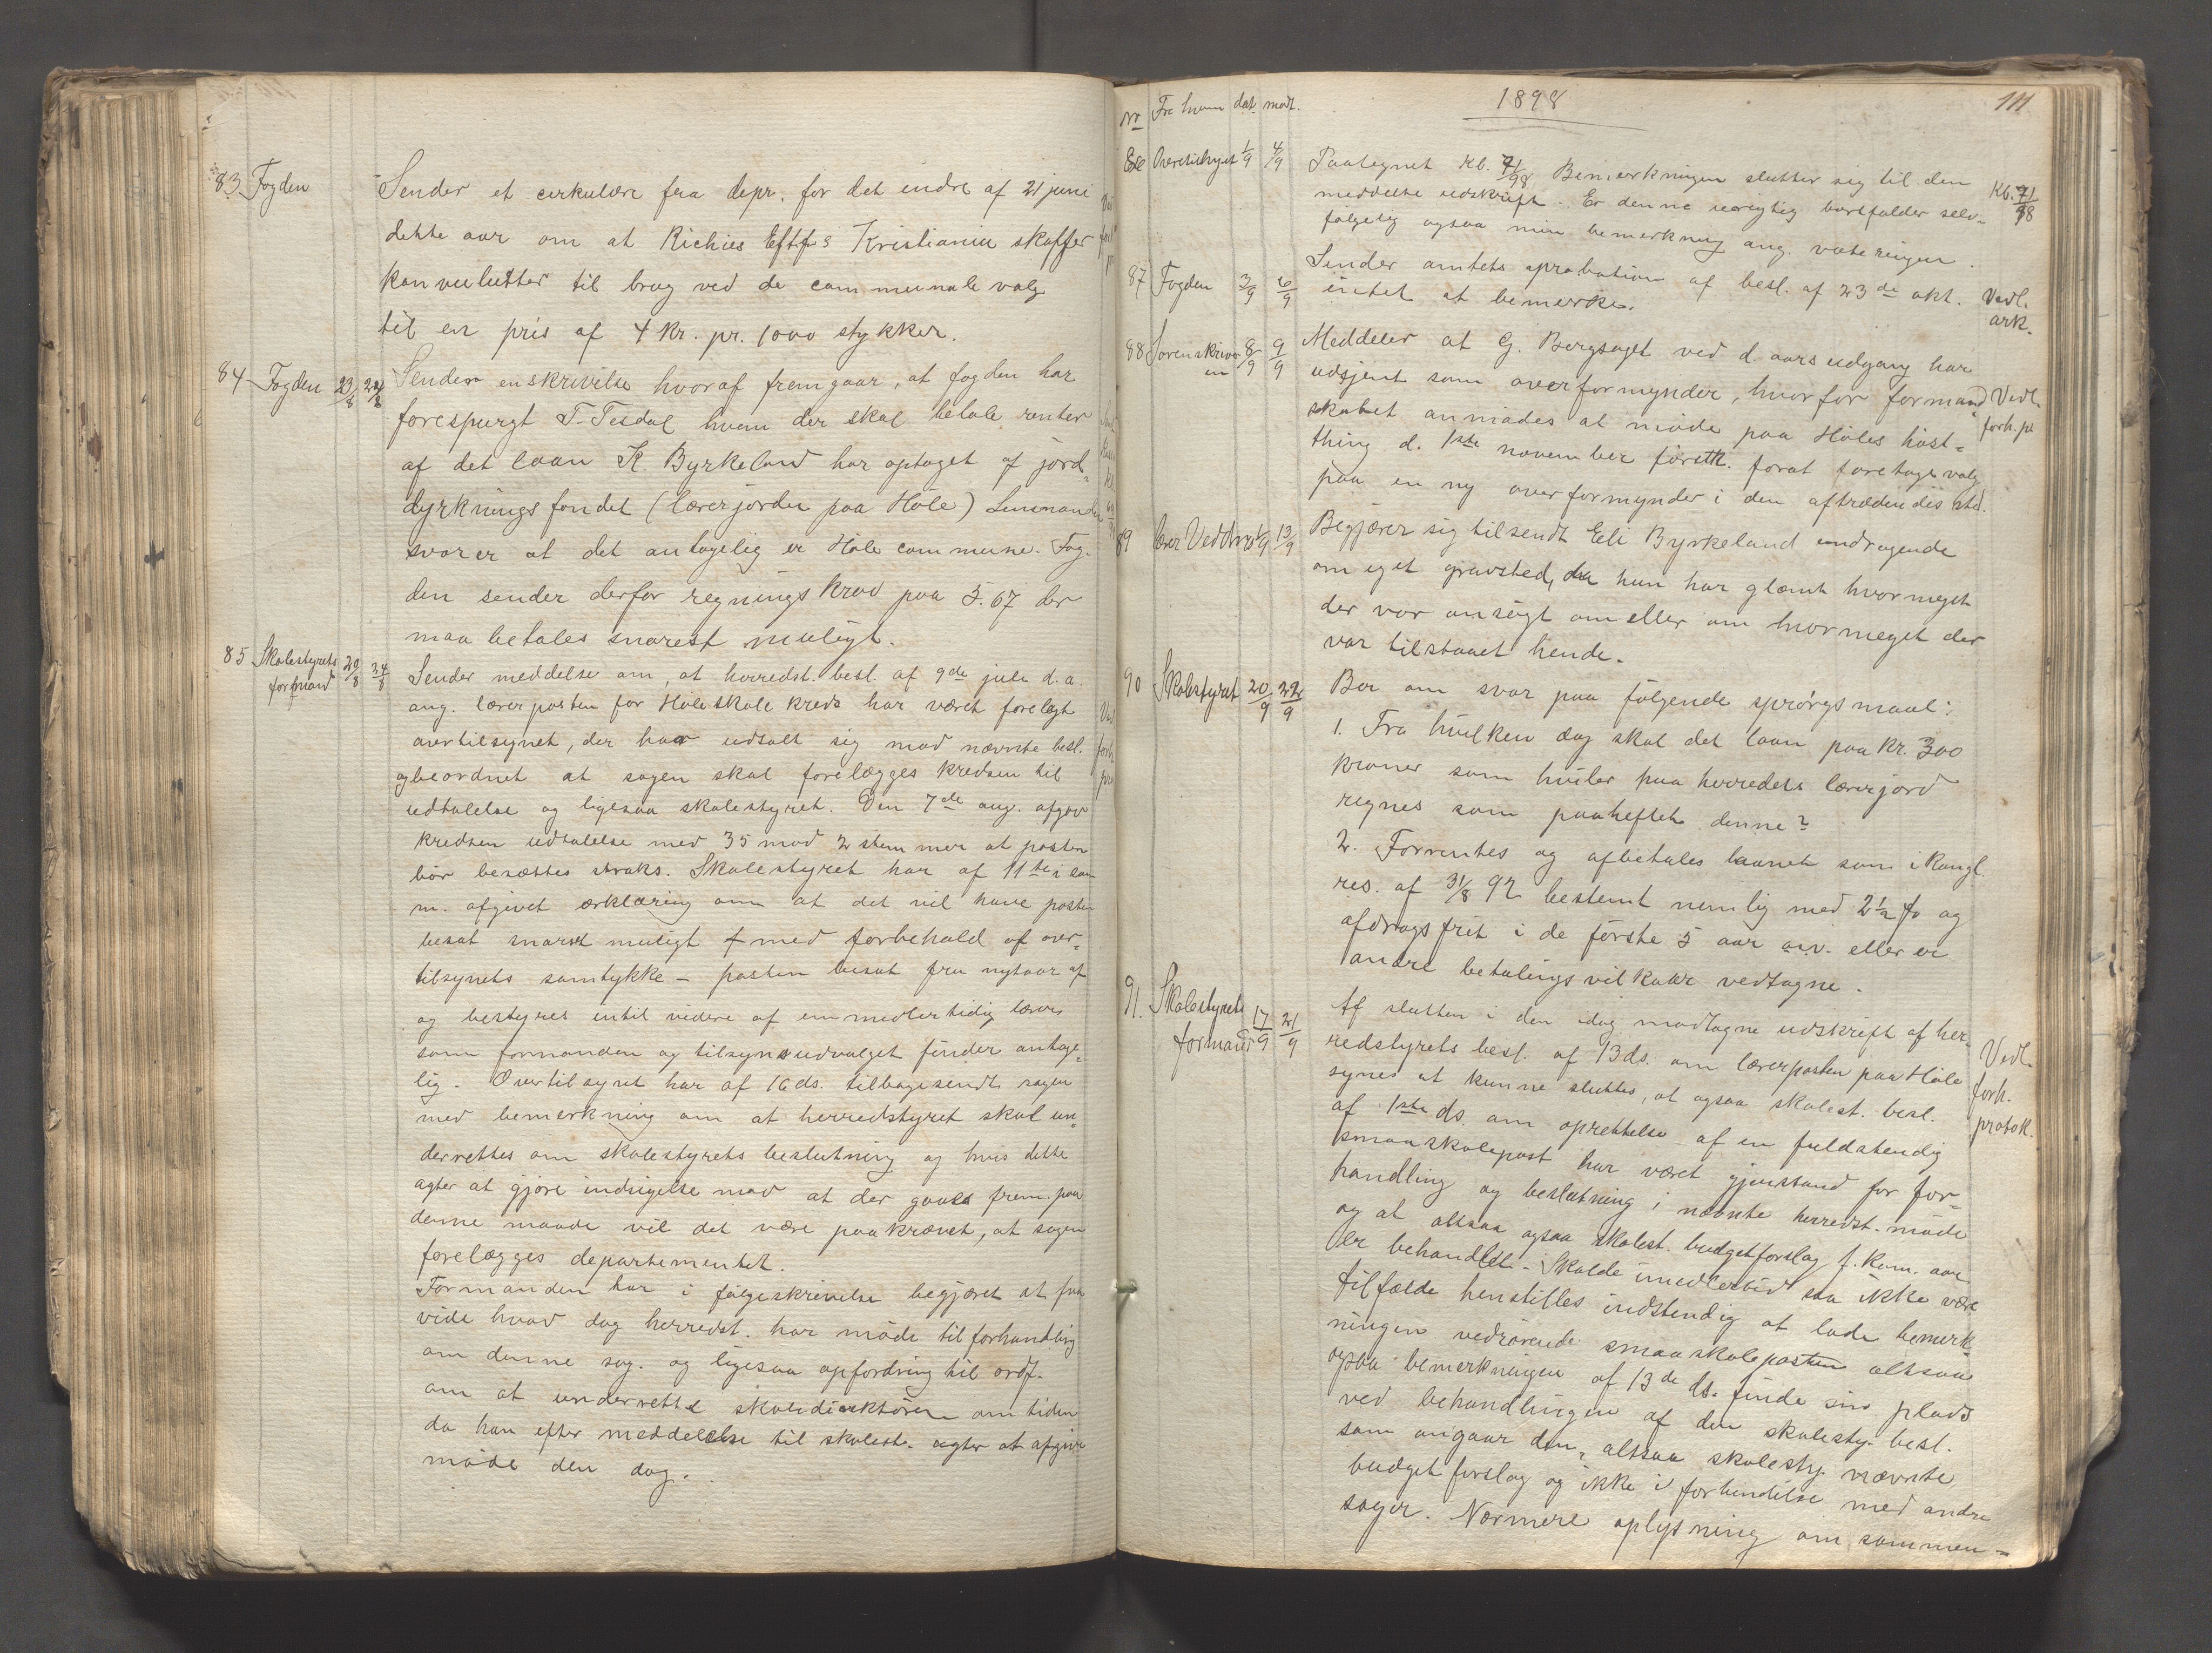 83 Fogden
Sender et cirkulære fra depr. for det indre af 21 juni
dette aar om at Richies Eftf.s Kristiania skaffer
konvulutter til brug ved de communale valg
til en pris af 4 kr. pr. 1000 stykker.
84 Fogden 23/8 24/8
Sender en skrivelse hvoraf fremgaar, at fogden har
forespurgt T. Tesdal hvem der skal betale renter
af det laan K. Byrkeland har optaget af jord-
dyrkningsfondet (lærerjorden paa Höle) Lensmanden
svarer at det antagelig er Höle commune. Fog-
den sender derfor regningskrav paa 5.67 der
maa betales snarest muligt.
85 Skolestyrets formand 20/8 24/8
Sender meddelse om, at herredst. besl. af 9de juli d.a.
ang. lærerposten for Höle skolekreds har været forelagt
overtilsynet, der har udtalt sig mod nævnte besl.
og beordret at sagen skal forelægges kredsen til
udtalelse og ligesaa skolestyret. Den 7de aug. afgav
kredsen udtalelse med 35 mod 2 stemmer at posten
bör besættes straks. Skolestyret har af 11te i sam
m. afgivet erklæring om at det vil have posten
besat snarest muligt med forbehold af over-
tilsynets samtykke – posten besat fra nytaar af
og bestyres intil videre af en midlertidig lærer
som formanden og tilsynsudvalget finder antage-
lig. Overtilsynet har af 16 ds. tilbagesendt sagen
med bemerkning om at herredstyret skal un-
derrettes om skolestyrets beslutning og hvis dette
agter at gjöre indsigelse mod at der gaaes frem paa
denne maade vil det være paakrævet, at sagen
forelægges departementet.
Formanden har i fölgeskrivelse begjæret at faa
vide hvad dag herredst. har möde til forhandling
om denne sag. og ligesaa opfordring til ordf.
om at underrette skoledirektören om tiden
da han efter meddelelse til skolest. agter at afgive
möde den dag.
No Fra hvem dat. modt. 1898 111
86 Overtilsynet 1/9 4/9
Paategnet Kb. 71/98 Bemerkningen slutter sig til den
meddelte udskrift. Er denne urigtig bortfalder selv-
fölgelig ogsaa min bemerkning ang. voteringen.
Kb. 71/98
87 Fogden 3/9 6/9
Sender amtets aprobation af besl. af 23de okt.
intet at bemerke.
Vedl. ark.
88 Sorenskriveren 8/9 9/9
Meddeler at G. Bergsaget ved d. aars udgang har
udtjent som overformynder, hvorfor formand-
skabet anmodes at möde paa Höles höst-
thing d. 1ste november förstk. forat foretage valg
paa en ny overformynder i den aftrædendes sted.
Vedl. forh. pr
89 13/9
Begjærer sig tilsendt Eli Byrkeland andragende
om eget gravsted, da hun har glemt hvormeget
der var ansögt om eller om hvormeget der
var tilstaaet hende.
90 Skolestyret 20/9 22/9
Ber om svar paa fölgende spörgsmaal:
1. Fra hvilken dag skal det laan paa kr. 300
kroner som hviler paa herredets lærerjord
regnes som paaheftet denne?
2. Forrentes og afbetales laanet som i kongl.
res. af 31/8 92 bestemt nemlig med 2½ % og
afdragsfrit i de förste 5 aar o.s.v. eller er
andre betalingsvilkaar vedtagne.
91. Skolestyrets formand 17/9 21/9
Af slutten i den idag modtagne udskrift af her-
redstyrets besl. af 13 ds. om lærerposten paa Höle
synes at kunne sluttes, at ogsaa skolest. besl.
af 1ste ds. om oprettelse af en fuldstendig
smaaskolepost har været gjenstand for for-
handling og beslutning i nævnte herredst. möde
og at altsaa ogsaa skolest. budgetforslag f. kom. aar
er behandlet. Skulde imedlertid saa ikke være
tilfælde henstilles indstendig at lade bemerk-
ningen vedrörende smaaskoleposten altsaa
ogsaa bemerkningen af 13de ds. finde sin plads
ved behandlingen af den skolesty. besl.
som angaar den, altsaa skolesty. nævnte
budgetforslag og ikke i forbindelse med andre
sager. Nærmere oplysning om sammen-
Vedl. forh. protok.